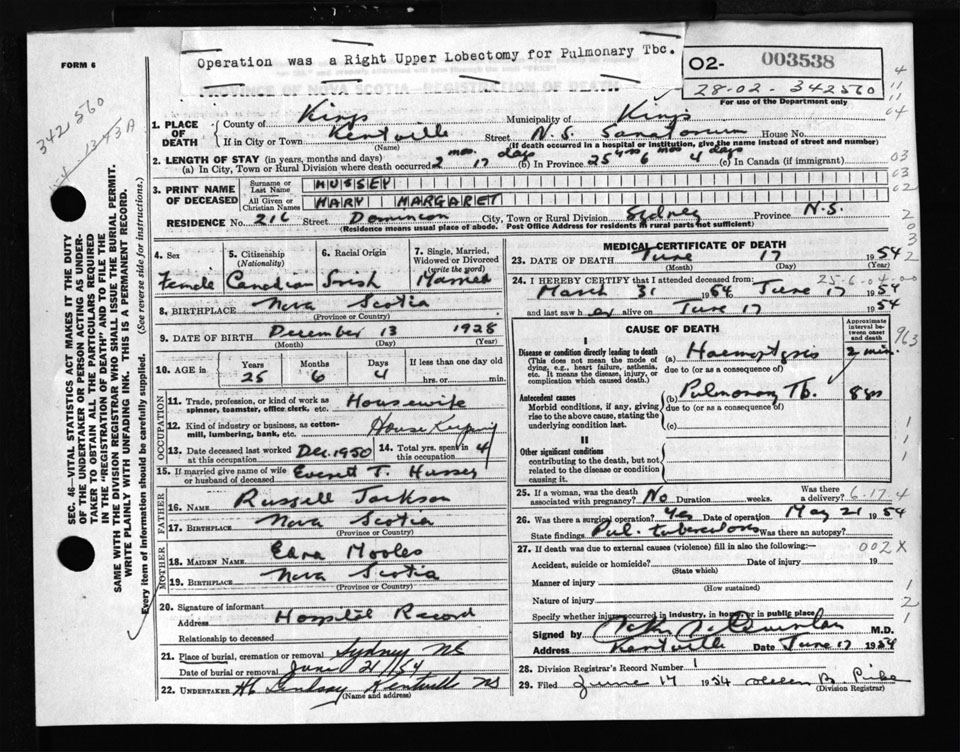 Operation was a Right Upper Lobectomy for Pulmonary Tbc.
FORM 6
PROVINCE OF NOVA SCOTIA - REGISTRATION OF DEATH
02- 003538
28-02- 342560
For use of the Department only
342560
SEC. 46—VITAL STATISTICS ACT MAKES IT THE DUTY
OF THE UNDERTAKER OR PERSON ACTING AS UNDER-
TAKER TO OBTAIN ALL THE PARTICULARS REQUIRED
IN THE "REGISTRATION OF DEATH" AND TO FILE THE
SAME WITH THE DIVISION REGISTRAR WHO SHALL ISSUE THE BURIAL PERMIT.
WRITE PLAINLY WITH UNFADING INK. THIS IS A PERMANENT RECORD.
Every item of information should be carefully supplied. (See reverse side for instructions.)
1. PLACE OF DEATH County of Kings Municipality of Kings
If in City or Town Kentville Street N.S. Sanatorium House No.
(Name) (If death occurred in a hospital or institution, give the name instead of street and number)
2. LENGTH OF STAY (in years, months and days)
(a) In City, Town or Rural Division where death occurred 2 mos. 17 days (b) In Province 25 yrs 6 mos 4 days (c) In Canada (if immigrant)
3. PRINT NAME OF DECEASED Surname or Last Name HUSSEY
All Given or Christian Names MARY MARGARET
RESIDENCE No. 216 Street Dominion City, Town or Rural Division Sydney Province N.S.
(Residence means usual place of abode. Post Office Address for residents in rural parts not sufficient)
4. Sex 5. Citizenship (Nationality) 6. Racial Origin 7. Single, Married, Widowed or Divorced (write the word)
Female Canadian Irish Married
8. BIRTHPLACE Nova Scotia
(Province or Country)
9. DATE OF BIRTH December 13 1928
(Month) (Day) (Year)
10. AGE in Years Months Days If less than one day old
25 6 4 hrs. or min.
OCCUPATION
11. Trade, profession, or kind of work as spinner, teamster, office clerk, etc. Housewife
12. Kind of industry or business, as cotton-mill, lumbering, bank, etc. House Keeping
13. Date deceased last worked at this occupation Dec. 1950 14. Total yrs. spent in this occupation 4
15. If married give name of wife or husband of deceased Everett T. Hussey
FATHER
16. NAME Russell Jackson
17. BIRTHPLACE Nova Scotia
(Province or Country)
MOTHER
18. MAIDEN NAME Edna
19. BIRTHPLACE Nova Scotia
(Province or Country)
20. Signature of informant
Address Hospital Record
Relationship to deceased
21. Place of burial, cremation or removal Sydney NS
Date of burial or removal June 21/54
22. UNDERTAKER Lindsay Kentville NS
(Name and address)
MEDICAL CERTIFICATE OF DEATH
23. DATE OF DEATH June 17 1954
(Month) (Day) (Year)
24. I HEREBY CERTIFY that I attended deceased from:
March 31 1954 June 17 1954
and last saw her alive on June 17 1954
CAUSE OF DEATH
Approximate interval between onset and death
I
Disease or condition directly leading to death (a) Haemoptysis 2 min.
(This does not mean the mode of dying, e.g., heart failure, asthenia, etc. It means the disease, injury, or complication which caused death.)
due to (or as a consequence of)
Antecedent causes (b) Pulmonary Tb. 8 yrs
Morbid conditions, if any, giving rise to the above cause, stating the underlying condition last.
due to (or as a consequence of)
(c)
II
Other significant conditions
contributing to the death, but not related to the disease or condition causing it.
963
25. If a woman, was the death associated with pregnancy? No Duration weeks. Was there a delivery?
6.17.4
26. Was there a surgical operation? Yes Date of operation May 21 1954
State findings Pul. tuberculosis Was there an autopsy?
27. If death was due to external causes (violence) fill in also the following:— 002X
Accident, suicide or homicide? Date of injury 19
(State which)
Manner of injury
(How sustained)
Nature of injury
Specify whether injury occurred in industry, in home or in public place
Signed by M.D.
Address Kentville Date June 17 1954
28. Division Registrar's Record Number 1
29. Filed June 17 1954 Helen B. Pike
(Division Registrar)